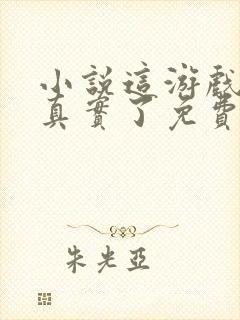 小說這游戲
真實了免費
朱光亞